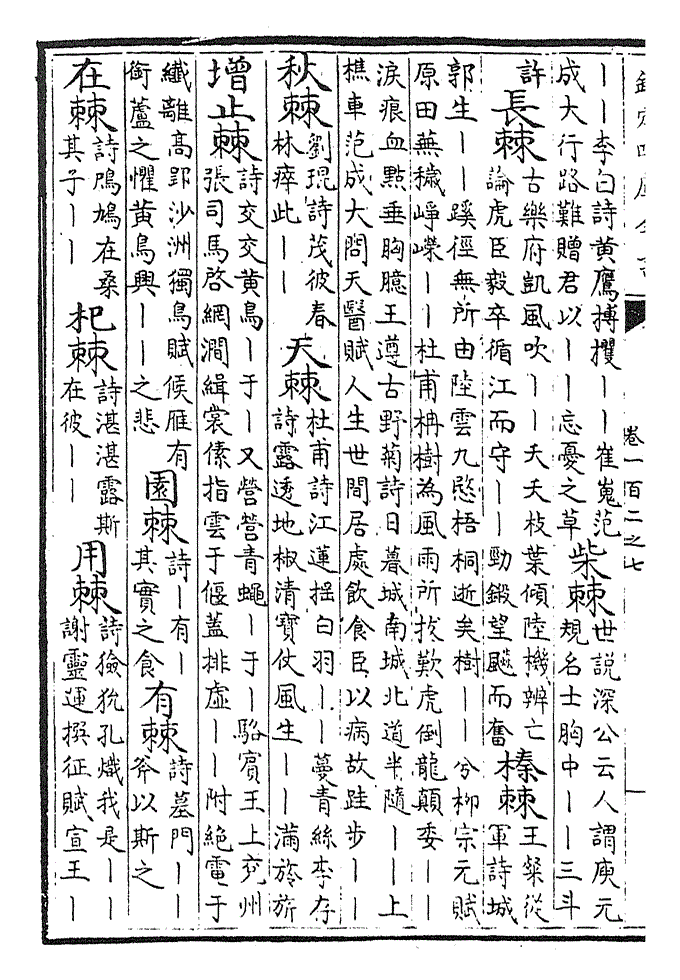 欽定四庫全書
卷一百二之七
丨丨李白詩黄鷹搏攫丨丨崔嵬范
成大行路難贈君以丨丨忘憂之草
柴棘
世説深公云人謂庾元
規名士胸中丨丨三斗
許
長棘
古樂府凱風吹丨丨夭夭枝葉傾陸機辨亡
論虎臣毅卒循江而守丨丨勁鍛望飈而奮
榛棘
王粲從
軍詩城
郭生丨丨蹊徑無所由陸雲九愍梧桐逝矣樹丨丨兮柳宗元賦
原田蕪穢崢嶸丨丨杜甫枏樹為風雨所拔歎虎倒龍顛委丨丨
淚痕血點垂胸臆王遵古野菊詩日暮城南城北道半隨丨丨上
樵車范成大問天醫賦人生世間居處飲食臣以病故跬步丨丨
秋棘
劉琨詩茂彼春
林瘁此丨丨
天棘
杜甫詩江蓮揺白羽丨丨蔓青絲李存
詩露透地椒清寶仗風生丨丨滿旍旂
增止棘
詩交交黄鳥丨于丨又營營青蠅丨于丨駱賓王上兖州
張司馬啓網澗緝裳傃指雲于偃蓋排虛丨丨附絶電于
纖離髙郢沙洲獨鳥賦候雁有
銜蘆之懼黄鳥興丨丨之悲
園棘
詩丨有丨
其實之食
有棘
詩墓門丨丨
斧以斯之
在棘
詩鳲鳩在桑
其子丨丨
杞棘
詩湛湛露斯
在彼丨丨
用棘
詩獫狁孔熾我是丨丨
謝靈運撰征賦宣王丨